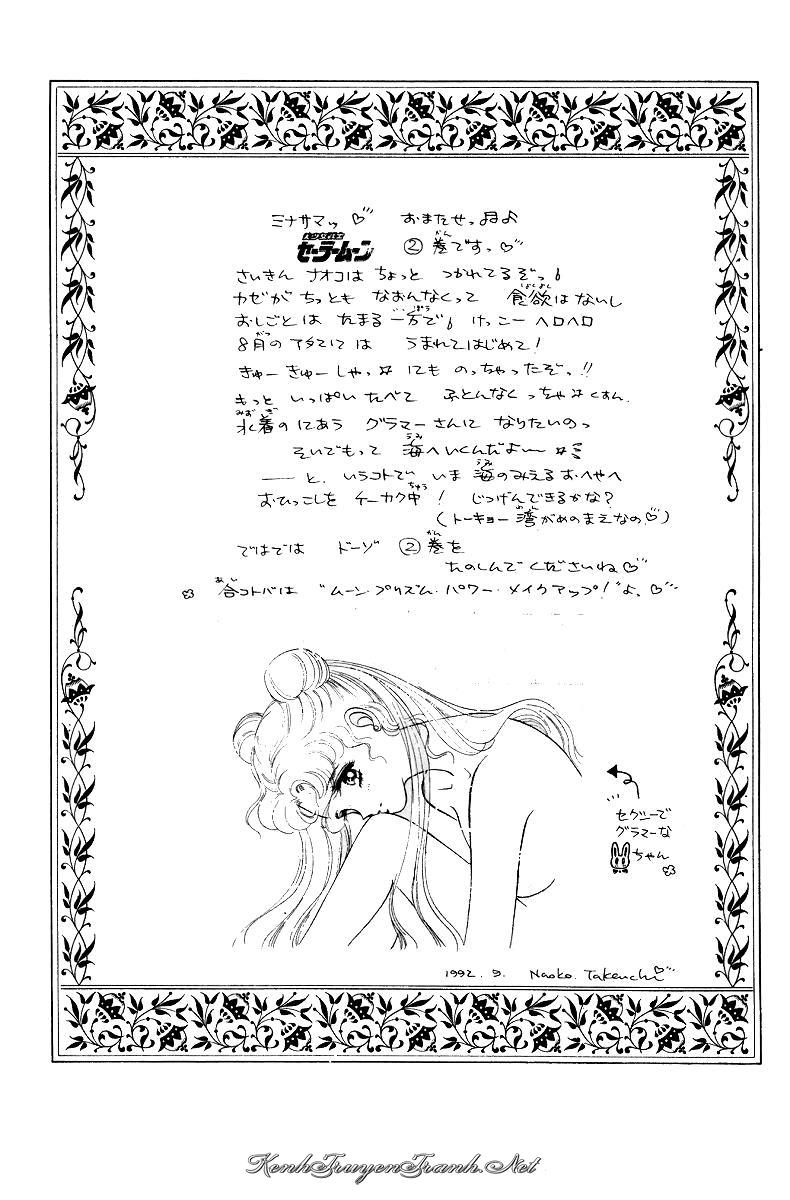 ミナサマッ♡ おまたせっ♬♪
美少女戦士
セーラームーン ②巻ですっ♡
さいきん ナオコは ちょっと つかれてるぞっ
カゼが ちっとも なおんなくって 食欲はないし
おしごとは たまる一方で けっこーヘロヘロ
8月の アタマには うまれてはじめて!
きゅーきゅーしゃっ☆にも のっちゃったぞっ!!
もっと いっぱい たべて ふとんなくっちゃ☆くすん
水着のにあう グラマーさんに なりたいのっ
そいでもって 海へいくんだよー☆
――と、いうコトで いま 海のみえるおへやへ
おひっこしを チーカク中! じつげんできるかな?
(トーキョー湾がめのまえなの♡)
ではでは ドーゾ ②巻を
たのしんでくださいね♡
合コトバは "ムーン・プリズム・パワー・メイクアップ!"よ。♡
セクシーで
グラマーな
ちゃん
1992. 9. Naoko. Takeuchi♡
KenhTruyenTranh.Net